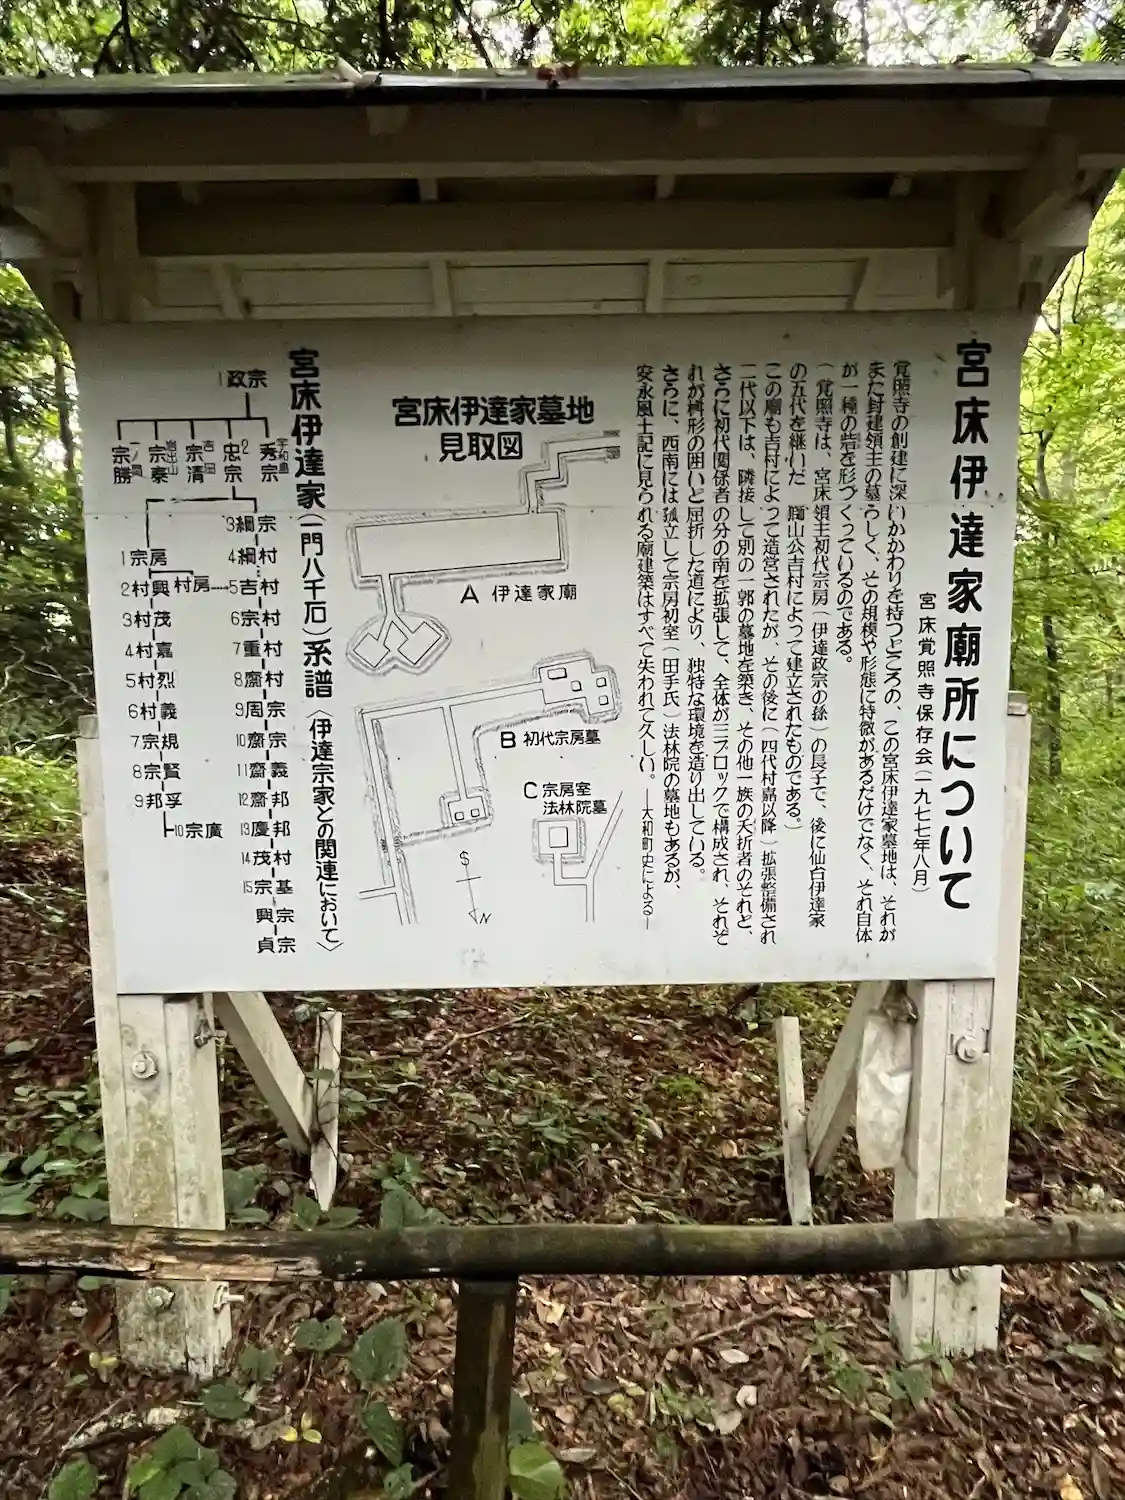 宮床伊達家廟所について
宮床覚照寺保存会(一九七七年八月)
覚照寺の創建に深いかかわりを持つところの、この宮床伊達家墓地は、それが
また封建領主の墓らしく、その規模や形態に特徴があるだけでなく、それ自体
が一種の砦を形づくっているのである。
(覚照寺は、宮床領主初代宗房(伊達政宗の孫)の長子で、後に仙台伊達家
の五代を継いだ 山公吉村によって建立されたものである。)
この廟も吉村によって造営されたが、その後に(四代村嘉以降)拡張整備され
二代以下は、隣接して別の一郭の墓地を築き、その他一族の夭折者のそれと、
さらに初代関係者の分の南を拡張して、全体が三ブロックで構成され、それぞ
れが桝形の囲いと屈折した道により、独特な環境を造り出している。
さらに、西南には孤立して宗房初室(田手氏)法林院の墓地もあるが、
安永風土記に見られる廟建築はすべて失われて久しい。―大和町史による―
宮床伊達家墓地
見取図
A 伊達家廟
B 初代宗房墓
C 宗房室
法林院墓
S
N
宮床伊達家(一門八千石)系譜〈伊達宗家との関連において〉
1政宗
宇和島
秀宗
2
忠宗
吉岡
宗清
岩出山
宗泰
一ノ関
宗勝
3綱宗
4綱村
5吉村
6宗村
7重村
8齋村
9周宗
10齋宗
11齋義
12齋邦
13慶邦
14茂村
15宗基
興宗
貞宗
1宗房
2村興
村房
3村茂
4村嘉
5村烈
6村義
7宗規
8宗賢
9邦孚
10宗廣